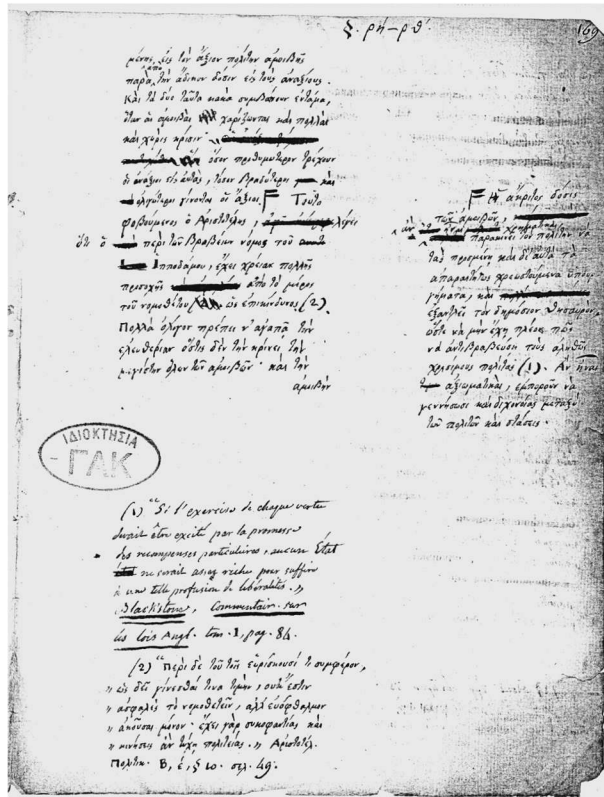 §. ρή – ρθ΄.
169
μένης εἰς τὸν ἄξιον πολίτην ἀμοιβῆς
παρὰ τὴν ἄδικον δόσιν εἰς τοὺς ἀναξίους.
Καὶ τὰ δύο ταῦτα κακὰ συμβαίνουν ἐντάμα,
ὅταν αἱ ἀμοιβαὶ χαρίζωνται καὶ πολλαὶ
καὶ χωρὶς κρίσιν·
ὅσον προθυμότερον τρέχουν
οἱ ἀνάξιοι εἰς αὐτὰς, τόσον βραδύτεροι καὶ
ὀλιγώτεροι γίνονται οἱ ἄξιοι. F Τοῦτο
φοβούμενος ὁ Ἀριστοτέλης, λέγει
ὅτι ὁ περὶ τῶν βραβείων νόμος τοῦ
Ἱπποδάμου, ἔχει χρείαν πολλῆς
προσοχῆς ἀπὸ τὸ μέρος
τοῦ νομοθέτου, ὡς ἐπικίνδυνος (2).
Πολλὰ ὀλίγον πρέπει ν' ἀγαπᾷ τὴν
ἐλευθερίαν ὅστις δὲν τὴν κρίνει τὴν
μεγίστην ὅλων τῶν ἀμοιβῶν· καὶ τὴν
ἀμοιβὴν
F Ἡ ἄκριτος δόσις
τῶν ἀμοιβῶν,
παρακινεῖ τὸν πολίτην νὰ
τὰς προσμένῃ καὶ δι' αὐτὰ τὰ
ἀπαραιτήτως χρεωστούμενα ὑπουρ-
γήματα, καὶ
ἐξαντλεῖ τὸν δημόσιον θησαυρὸν,
ὥστε νὰ μὴν ἔχῃ πλέον πῶς
νὰ ἀντιβραβεύσῃ τοὺς ἀληθῶς
χρησίμους πολίτας (1). Ἂν ἦναι
ἀξιωματικαὶ, ἐμποροῦν νὰ
γεννήσωσι καὶ διχονοίας μεταξὺ
τῶν πολιτῶν καὶ στάσεις.
ΙΔΙΟΚΤΗΣΙΑ
ΓΑΚ
(1) "Si l'exercice de chaque vertu
devait être excité par la promesse
des récompenses particulières, aucun État
ne serait assez riche pour suffire
à une telle profusion de libéralités."
Blackstone, Commentair. sur
les lois Angl. tom. 1, pag. 84.
(2) "Περὶ δὲ τοῦ τοῖς εὑρίσκουσί τι συμφέρον,
" ὡς δεῖ γίνεσθαί τινα τιμὴν, οὐκ ἔστιν
" ἀσφαλὲς τὸ νομοθετεῖν, ἀλλ' εὐόφθαλμον
" ἀκοῦσαι μόνον· ἔχει γὰρ συκοφαντίας καὶ
" κινήσεις ἂν τύχῃ πολιτείας." Ἀριστοτέλ.
Πολιτικ. Β, έ, § 10. σελ. 49.